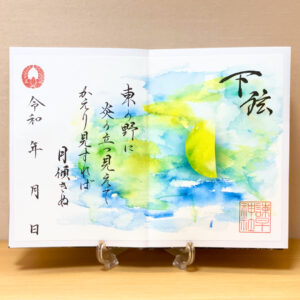 下弦
東の野に
炎の立つ見えて
かえり見すれば
月傾きぬ
令和 年 月 日